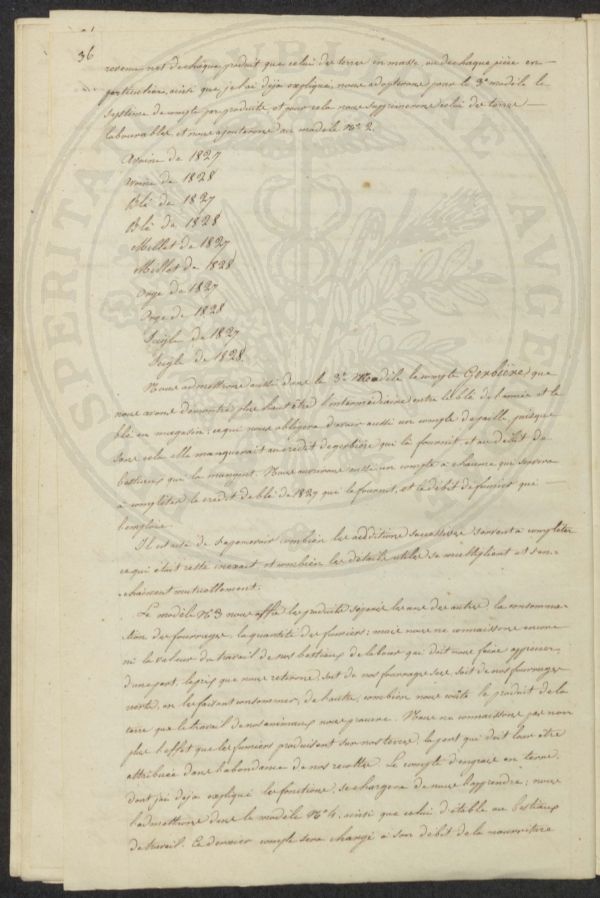 36
revenu net de chaque produit que celui des terres en masse, ou de chaque pièce en
particulier, ainsi que je l'ai déja expliqué, nous adopterons pour le 3e modèle le
système de compte par produits, et pour cela nous supprimerons celui des terres
labourables et nous ajouterons au modèle No 2.
Avoine de 1827
Avoine de 1828
Blé de 1827
Blé de 1828
Millet de 1827
Millet de 1828
Orge de 1827
Orge de 1828
Seigle de 1827
Seigle de 1828.
Nous admettrons aussi dans le 3e Modèle le compte Gerbière, que
nous avons démontré plus haut être l'intermédiaire entre le blé de l'année et le
blé en magasin; ce qui nous obligera d'avoir aussi un compte de paille, puisque
sans cela elle manquerait au crédit de gerbière qui la fournit et au débit de
bestiaux qui la mangent. Nous ouvrirons aussi un compte à chaume qui servira
à compléter le crédit de blé de 1827 qui le fournit, et le débit de fumier qui
l'emploie.
Il est aisé de s'apercevoir combien les additions successives servent à compléter
ce qui était resté inexact et combien les détails utiles se multiplient et s'en-
chaînent mutuellement.
Le modèle No 3 nous offre les produits séparés les uns des autres, la consomma-
tion des fourrages, la quantité des fumiers; mais nous ne connaissons encore
ni la valeur du travail de nos bestiaux de labour qui doit nous faire apprécier,
d'une part, le prix que nous retirons, soit de nos fourrages secs, soit de nos fourrages
verts, en les faisant consommer; de l'autre, combien nous coûte le produit de la
terre que le travail de nos animaux nous procure. Nous ne connaissons pas non
plus l'effet que les fumiers produisent sur nos terres, la part qui doit leur être
attribuée dans l'abondance de nos récoltes. Le compte d'engrais en terre,
dont j'ai déja expliqué les fonctions, se chargera de nous l'apprendre; nous
l'admettrons dans le modèle No 4, ainsi que celui d'étable ou bestiaux
de travail. Ce dernier compte sera chargé à son débit de la nourriture